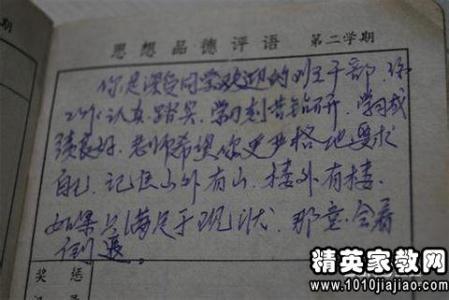 思想品德评语 第二学期
你是深受同学欢迎的班干部,你
工作认真,踏实,学习刻苦钻研,学习成
绩良好,老师希望你更严格地要求
自己,记住山外有山,楼外有楼,
如果只满足于现状,那意会着
倒退。
奖惩
精英家教网
www.1010jiajiao.com